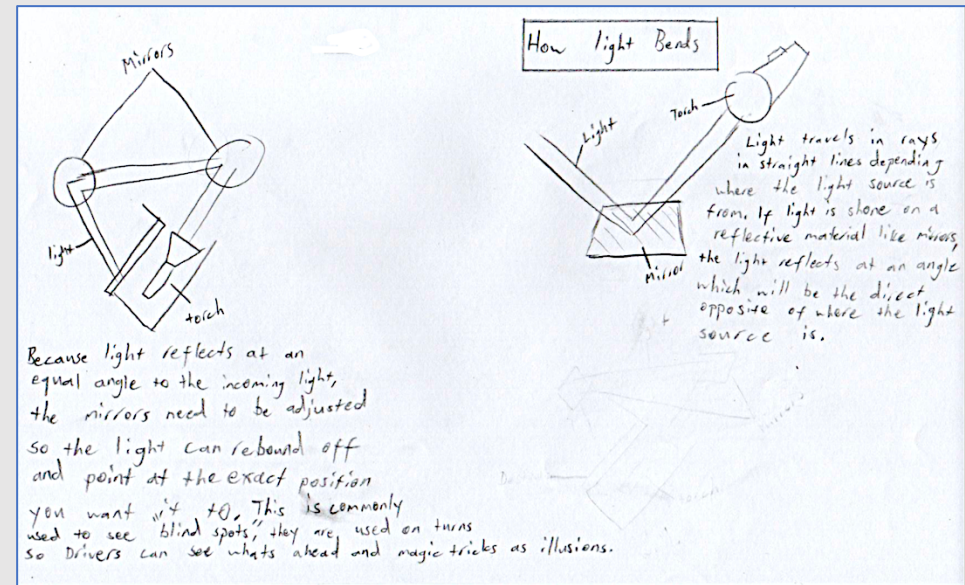 Mirrors
light
torch
Because light reflects at an
equal angle to the incoming light,
the mirrors need to be adjusted
so the light can rebound off
and point at the exact position
you want it to. This is commonly
used to see "blind spots", they are used on turns
so Drivers can see whats ahead and magic tricks as illusions.
How light Bends
Torch
Light
Mirror
Light travels in rays
in straight lines depending
where the light source is
from. If light is shone on a
reflective material like mirrors,
the light reflects at an angle
which will be the direct
opposite of where the light
source is.